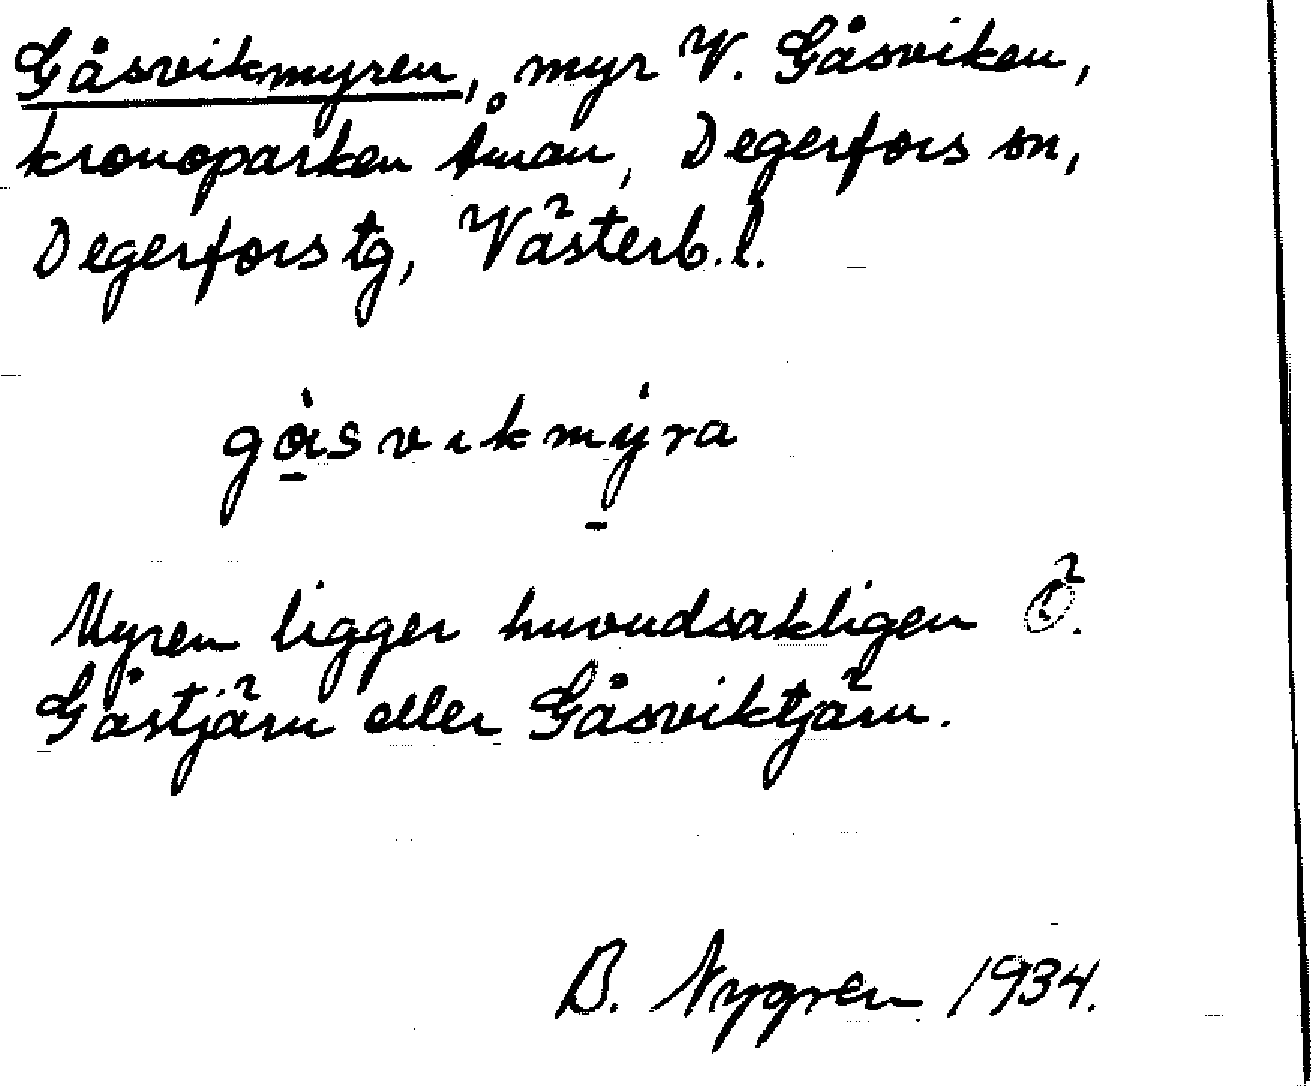 Gåsvikmyren, myr V. Gåsviken,
kronoparken Åman, Degerfors sn,
Degerfors tg, Västerb. l.
gåsvikmýra
Myren ligger huvudsakligen Ö.
Gåstjärn eller Gåsviktjärn.
B. Nygren 1934.